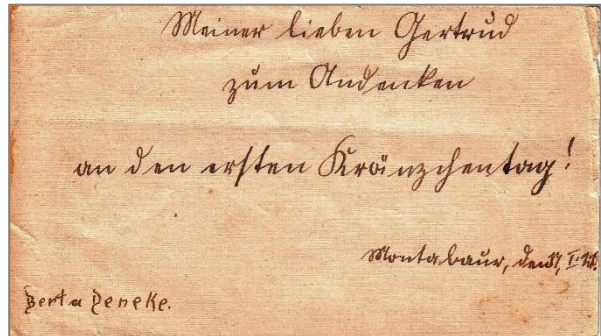 Meiner lieben Gertrud
zum Andenken
an den ersten Kränzchentag!
Montabaur, den
Berta Deneke.